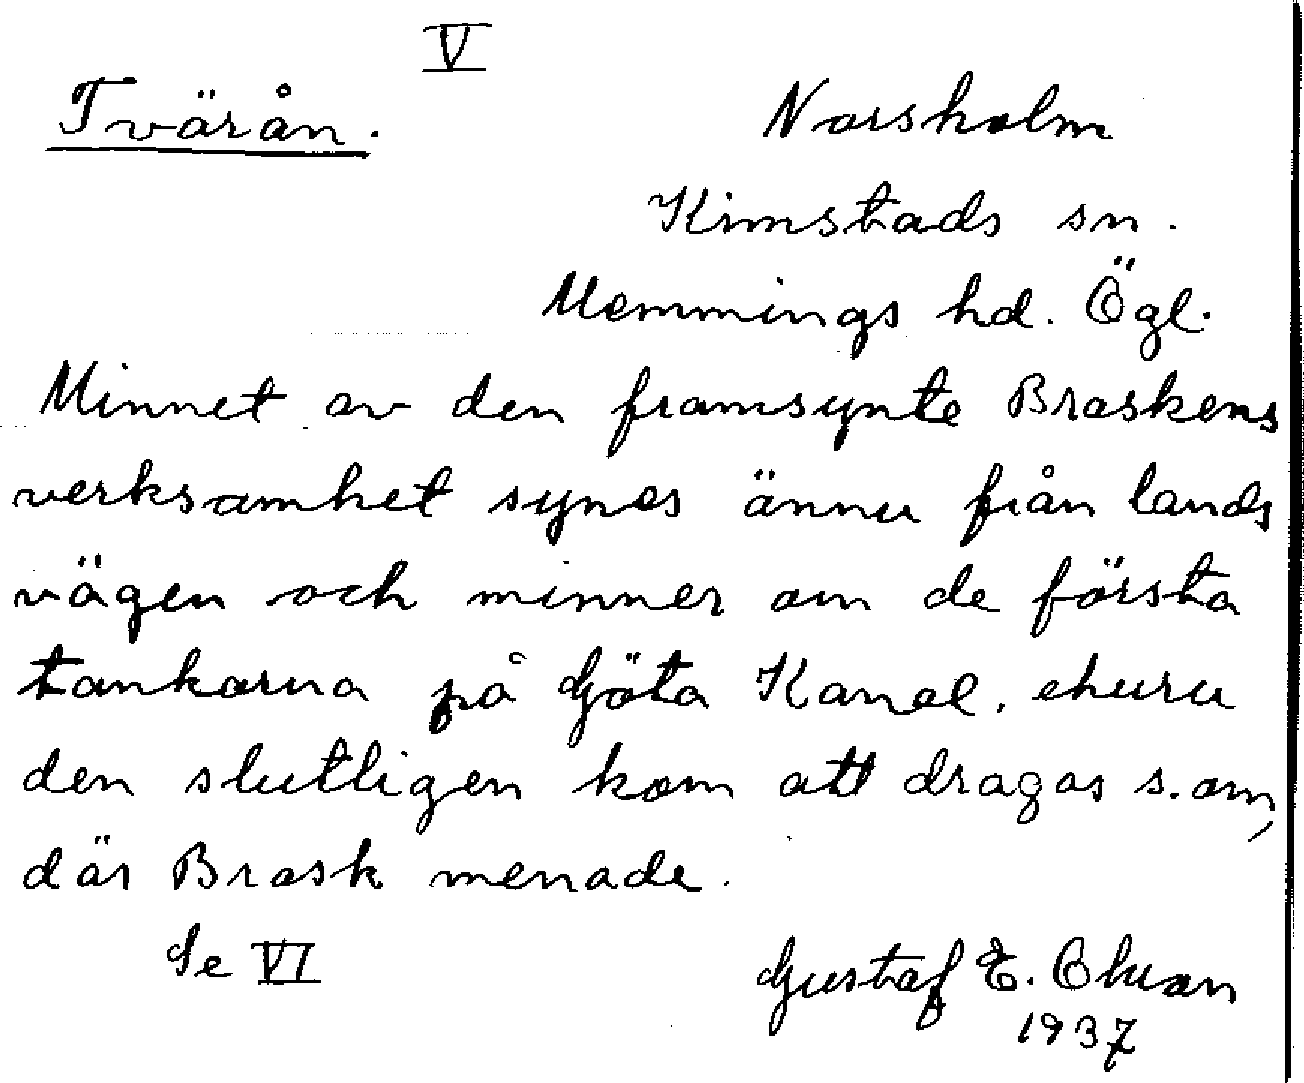 V
Tvärån.
Norsholm
Kimstads sn.
Memmings hd. Ögl.
Minnet av den framsynte Braskens
verksamhet synes ännu från lands
vägen och minner om de första
tankarna på Göta Kanal, ehuru
den slutligen kom att dragas s. om,
där Brask menade.
Se VI
Gustaf E.
1937